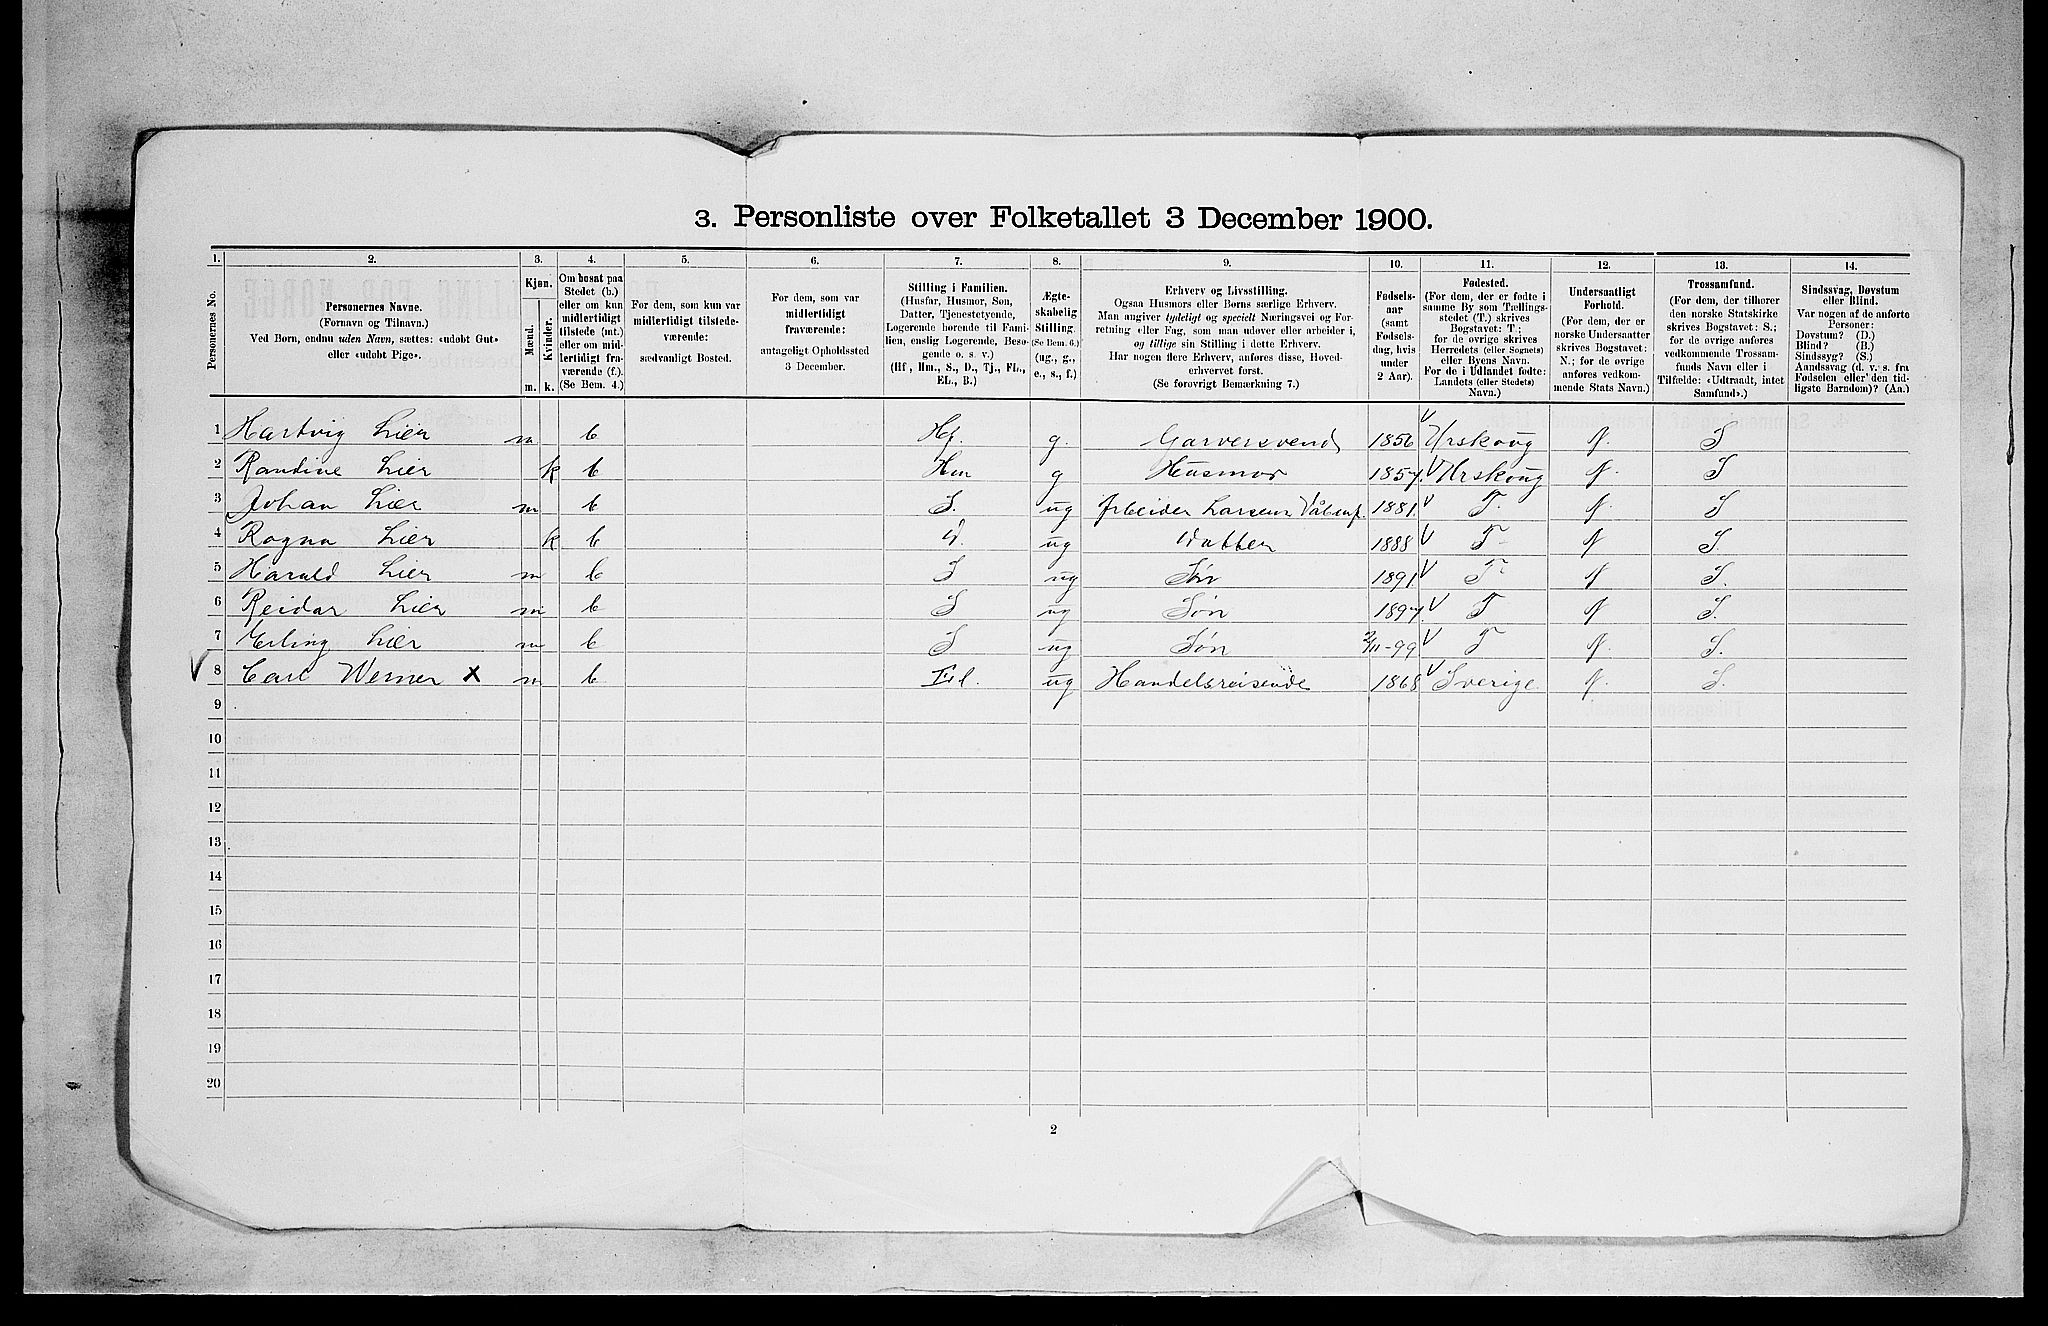 3. Personliste over Folketallet 3 December 1900.
1. 2. 3. 4. 5. 6. 7. 8. 9. 10. 11. 12. 13. 14.
Personernes No.
Personernes Navne.
(Fornavn og Tilnavn.)
Ved Børn, endnu uden Navn, sættes: «udøbt Gut»
eller «udøbt Pige».
Kjøn.
Mænd.
Kvinder.
m. k.
Om bosat paa
Stedet (b.)
eller om kun
midlertidigt
tilstede (mt.)
eller om mid-
lertidigt fra-
værende (f.).
(Se Bem. 4.)
For dem, som kun var
midlertidigt tilstede-
værende:
sædvanligt Bosted.
For dem, som var
midlertidigt
fraværende:
antageligt Opholdssted
3 December.
Stilling i Familien.
(Husfar, Husmor, Søn,
Datter, Tjenestetyende,
Logerende hørende til Fami-
lien, enslig Logerende, Besø-
gende o. s. v.)
(Hf, Hm., S., D., Tj., FL.,
EL., B.)
Ægte-
skabelig
Stilling.
(Se Bem. 6.)
(ug., g.,
e., s., f.)
Erhverv og Livsstilling.
Ogsaa Husmors eller Børns særlige Erhverv.
Man angiver tydeligt og specielt Næringsvei og For-
retning eller Fag, som man udøver eller arbeider i,
og tillige sin Stilling i dette Erhverv.
Har nogen flere Erhverv, anføres disse, Hoved-
erhvervet først.
(Se forøvrigt Bemærkning 7.)
Fødsels-
aar
(samt
Fødsels-
dag, hvis
under
2 Aar).
Fødested.
(For dem, der er fødte i
samme By som Tællings-
stedet (T.) skrives
Bogstavet: T.;
for de øvrige skrives
Herredets (eller Sognets)
eller Byens Navn.
For de i Udlandet fødte:
Landets (eller Stedets)
Navn.)
Undersaatligt
Forhold.
(For dem, der er
norske Undersaatter
skrives Bogstavet:
N.; for de øvrige
anføres vedkom-
mende Stats Navn.)
Trossamfund.
(For dem, der tilhører
den norske Statskirke
skrives Bogstavet: S.;
for de øvrige anføres
vedkommende Trossam-
funds Navn eller i
Tilfælde: «Udtraadt, intet
Samfund».)
Sindssvag, Døvstum
eller Blind.
Var nogen af de anførte
Personer:
Døvstum? (D.)
Blind? (B.)
Sindssyg? (S.)
Aandssvag (d. v. s. fra
Fødselen eller den tid-
ligste Barndom)? (Aa.)
1 Hartvig Lier m b Hf. g. Garversvend 1856 V Urskoug N. S
2 Randine Lier k b Hm g Husmor 1857. V Urskoug N. S
3 Johan Lier m b S. ug Arbeider Larsens Våbenf. 1881. V T. N. S
4 Ragna Lier k b d. ug Datter 1888 V T N S.
5 Harald Lier m b S ug Søn 1891. V T N S.
6 Reidar Lier m b S ug Søn 1897. V T N S.
7 Erling Lier m b S ug Søn 2/11-99 V T N. S.
V 8 Carl Werner X m b El. ug Handelsreisende 1868 V Sverige. N. S.
9
10
11
12
13
14
15
16
17
18
19
20
2